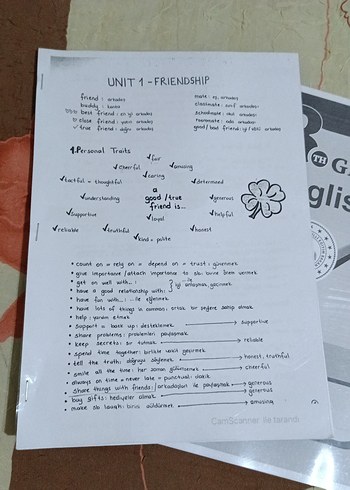 UNIT 1 - FRIENDSHIP
friend : arkadaş
buddy : kanka
best friend : en iyi arkadaş
close friend : yakın arkadaş
true friend : doğru arkadaş
mate : eş, arkadaş
classmate : sınıf arkadaşı
schoolmate : okul arkadaşı
roommate : oda arkadaşı
good/bad friend : iyi/kötü arkadaş
1. Personal Traits
✓fair
✓cheerful
✓amusing
✓caring
✓tactful = thoughtful
✓determined
a
good /true
friend is...
✓understanding
✓generous
✓supportive
✓loyal
✓helpful
✓reliable
✓truthful
✓honest
✓kind = polite
• count on = rely on = depend on = trust : güvenmek
• give importance /attach importance to sb: birine önem vermek
• get on well with...:
• have a good relationship with: } iyi anlaşmak, geçinmek
• have fun with...: ... ile eğlenmek
• have lots of things in common: ortak bir şeylere sahip olmak
• help : yardım etmek
• support = back up : desteklemek → supportive
• share problems : problemleri paylaşmak
• keep secrets : sır tutmak → reliable
• spend time together: birlikte vakit geçirmek
• tell the truth: doğruyu söylemek → honest, truthful
• smile all the time : her zaman gülümsemek → cheerful
• always on time = never late = punctual : dakik
• share things with friends : arkadaşları ile paylaşmak → generous
• buy gifts : hediyeler almak → generous
• make sb laugh: birini güldürmek → amusing
CamScanner ile tarandı
TH
glis